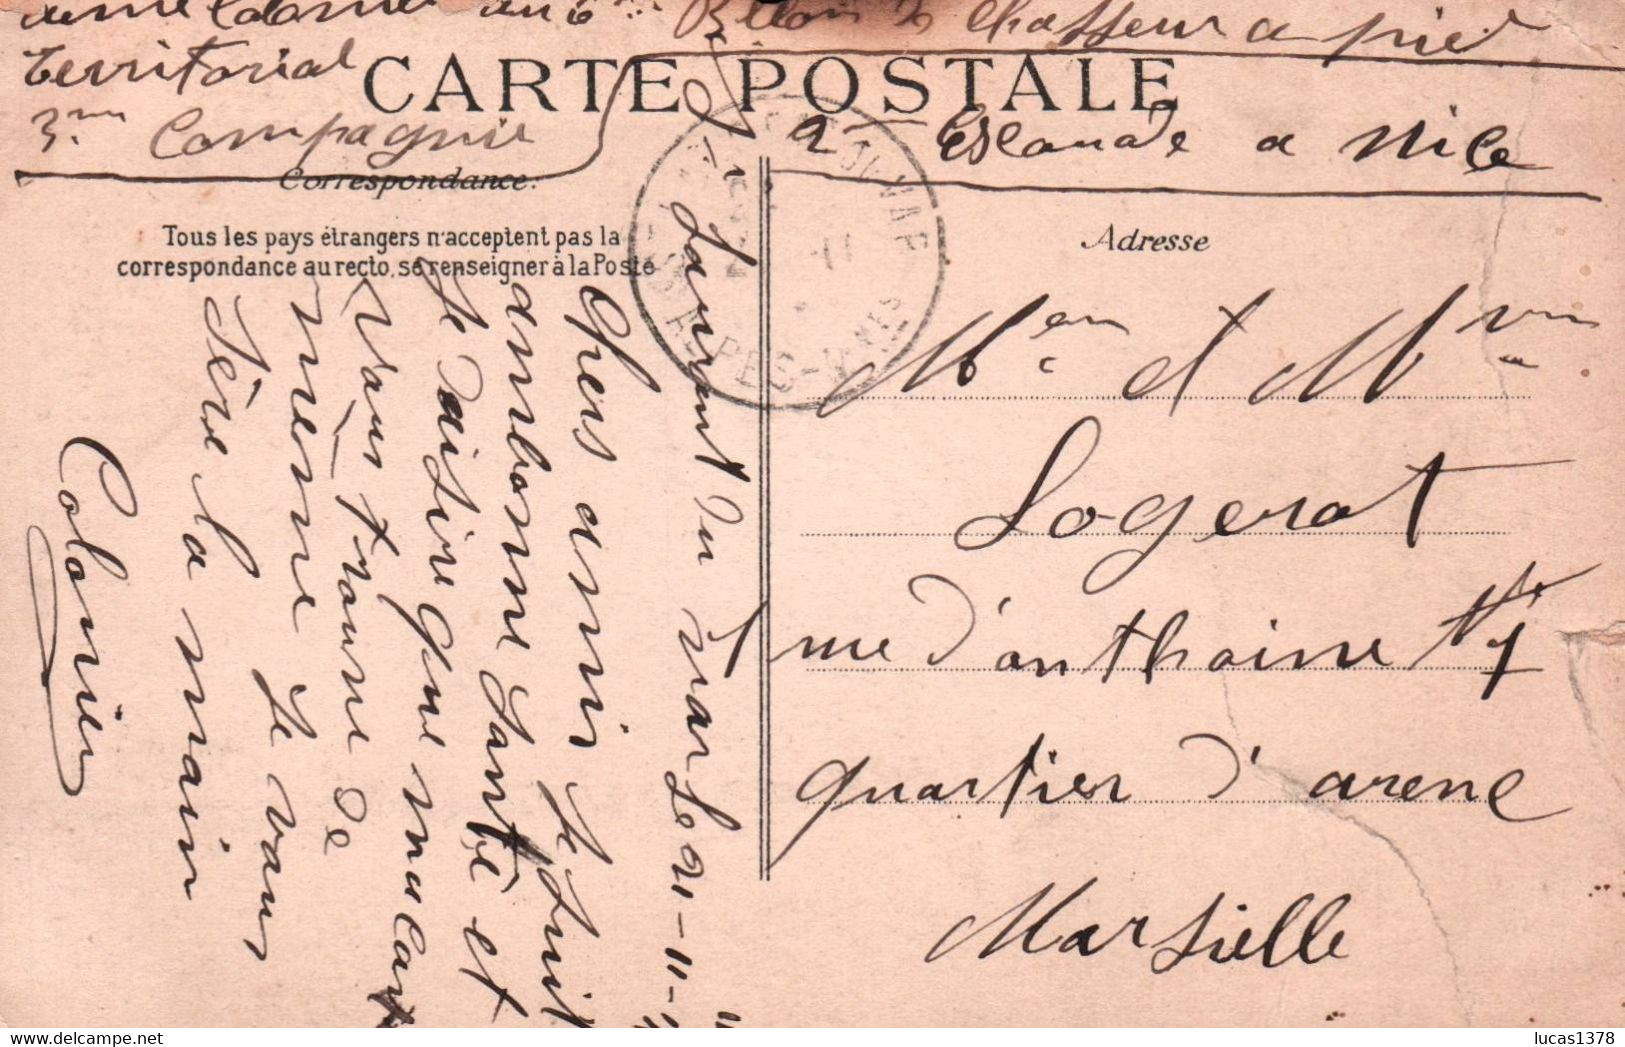 au 6me Btllon de Chasseur a pied
Territorial
3me Compagnie
2me Escouade a Nice
CARTE POSTALE
Correspondance.
Tous les pays étrangers n'acceptent pas la
correspondance au recto, se renseigner à la Poste
Adresse
St Laurent du Var Le 21-11-
Chers amis Je Suis
en bonne Santé et
Je Désire que ma Carte
Vous trouve de
même Je vous
Sère la main
Colonier
Mr et Mme
Logerat
rue d'anthoine No 1
quartier d'arene
Marsielle
lucas1378